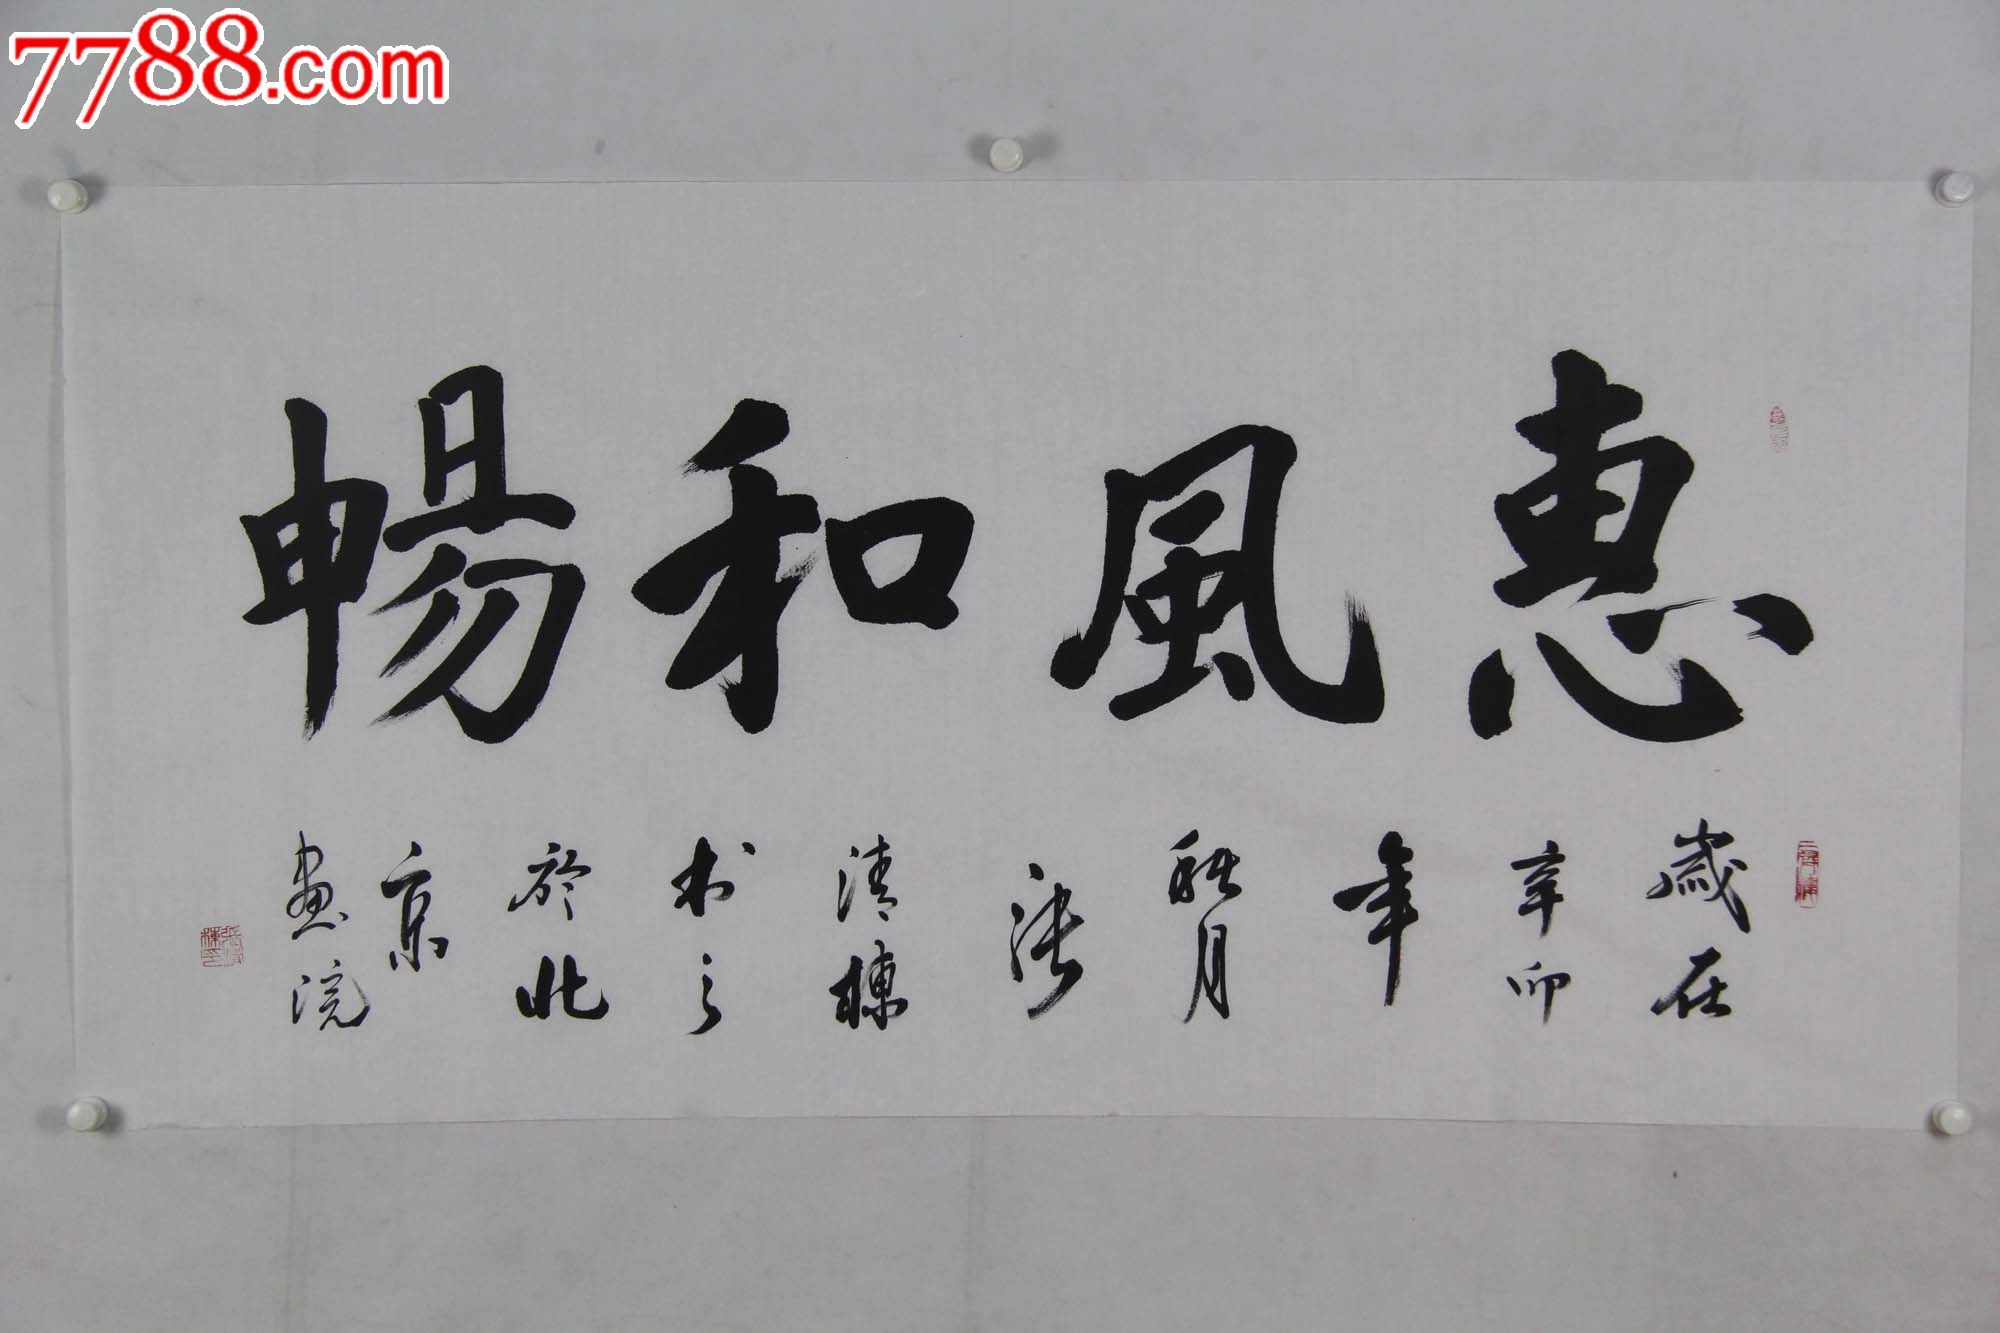 7788.com
惠風和暢
歲在
辛卯
年
秋月
张
清棟
书之
於北
京
畫院